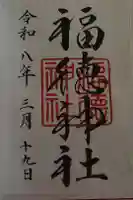 福徳神社
令和八年三月十九日